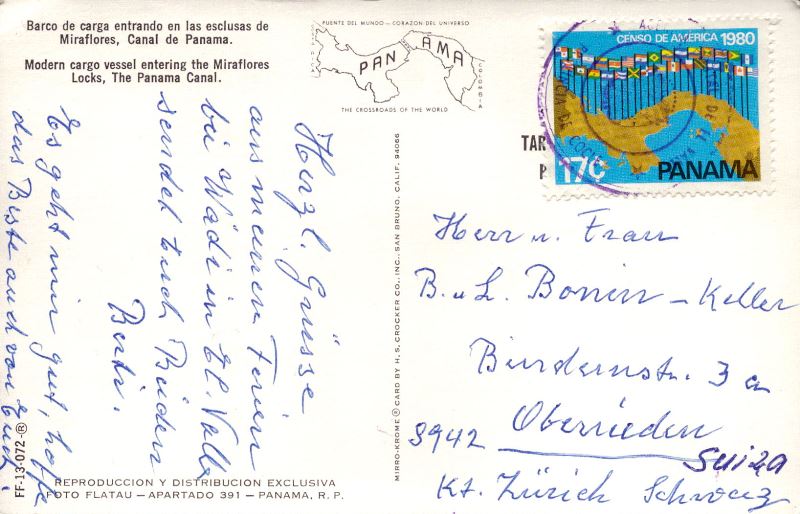 Barco de carga entrando en las esclusas de
Miraflores, Canal de Panama.
Modern cargo vessel entering the Miraflores
Locks, The Panama Canal.
PUENTE DEL MUNDO – CORAZON DEL UNIVERSO
PANAMA
COLOMBIA
THE CROSSROADS OF THE WORLD
CENSO DE AMERICA 1980
17c PANAMA
TAR
P
Herzl. Grüsse
aus meinen Ferien
bei Wädi in El Valle
sendet Euch Beiden
Berti.
Es geht mir gut, hoffe
das Beste auch von Euch.
Herrn u. Frau
B. u. L. Bonin – Keller
3a
8942 Oberrieden
Suiza
Kt. Zürich Schweiz
MIRRO-KROME ® CARD BY H. S. CROCKER CO., INC., SAN BRUNO, CALIF. 94066
FF-13-072-®
REPRODUCCION Y DISTRIBUCION EXCLUSIVA
FOTO FLATAU – APARTADO 391 – PANAMA, R. P.